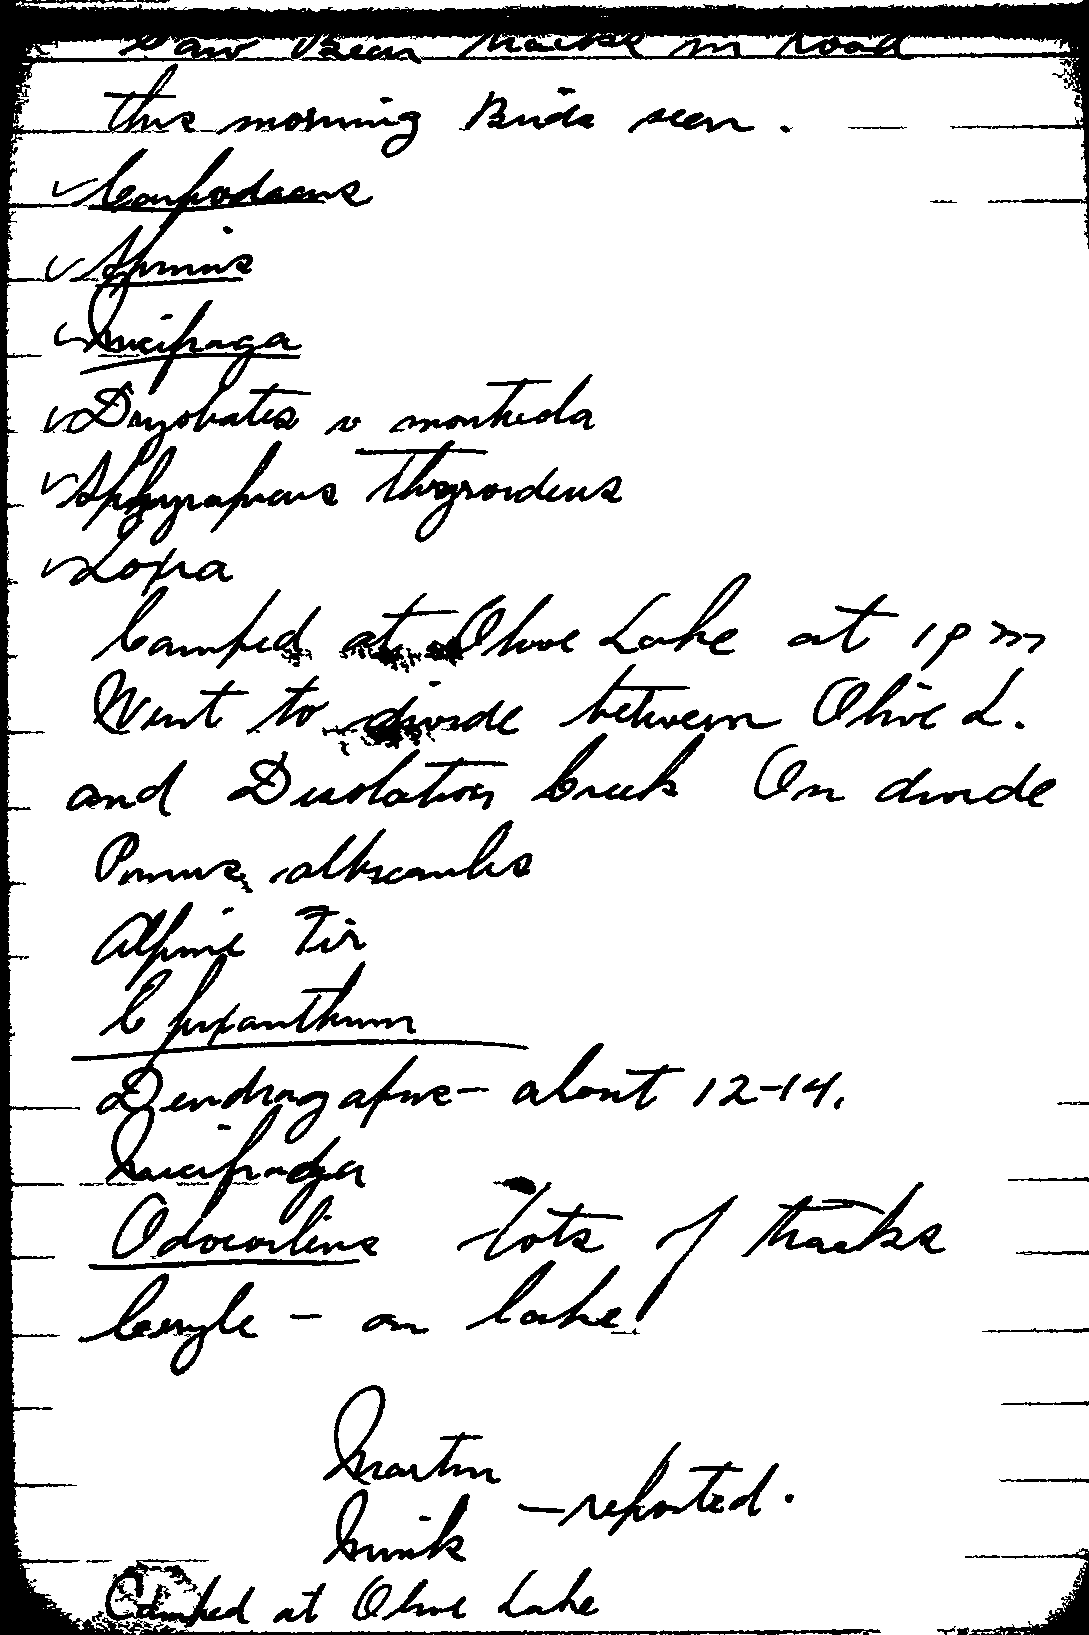 Saw Bear tracks in road
this morning Birds seen.
✓ Carpodacus
✓ Spinus
✓ Nucifraga
✓ Dryobates v monticola
✓ Sphyrapicus thyroideus
✓ Loxia
Camped at Olive Lake at 1 P m
Went to divide between Olive L.
and Desolation Creek On divide
Pinus albicaulis
Alpine Fir
Dendragapus - about 12-14.
Nucifraga
Odocoileus lots of tracks
- on lake
Martin
Mink - reported.
Camped at Olive Lake